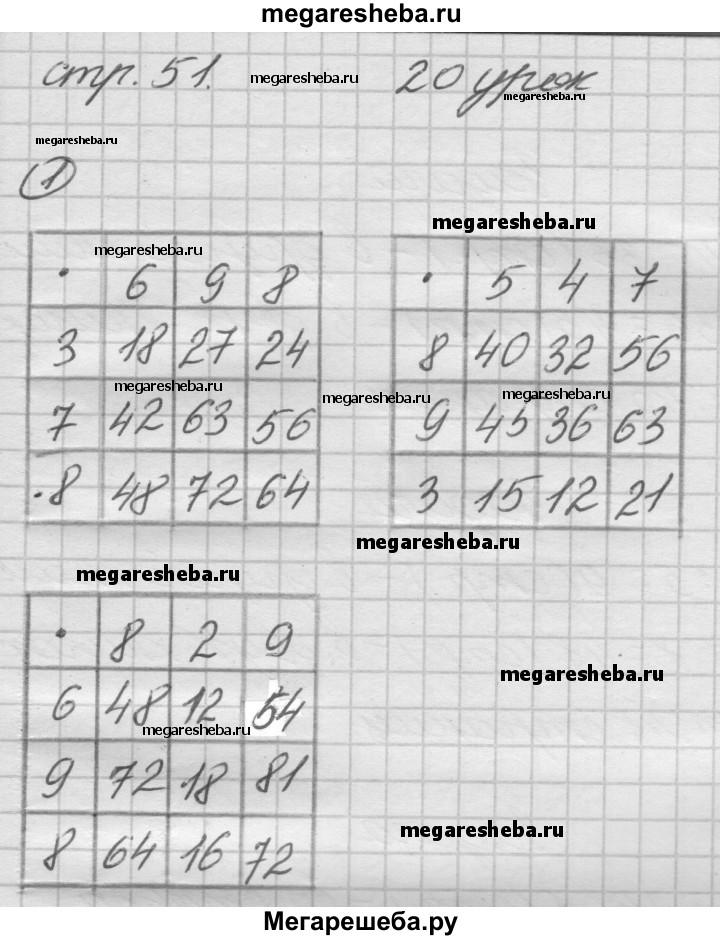 megaresheba.ru
стр. 51. megaresheba.ru 20 урок
megaresheba.ru
megaresheba.ru
1
megaresheba.ru
megaresheba.ru
· 6 9 8
3 18 27 24
megaresheba.ru
7 42 63 56
·8 48 72 64
· 5 4 7
8 40 32 56
megaresheba.ru megaresheba.ru
9 45 36 63
3 15 12 21
megaresheba.ru
megaresheba.ru
· 8 2 9
6 48 12 54
megaresheba.ru
9 72 18 81
8 64 16 72
megaresheba.ru
megaresheba.ru
Мегарешеба.ру